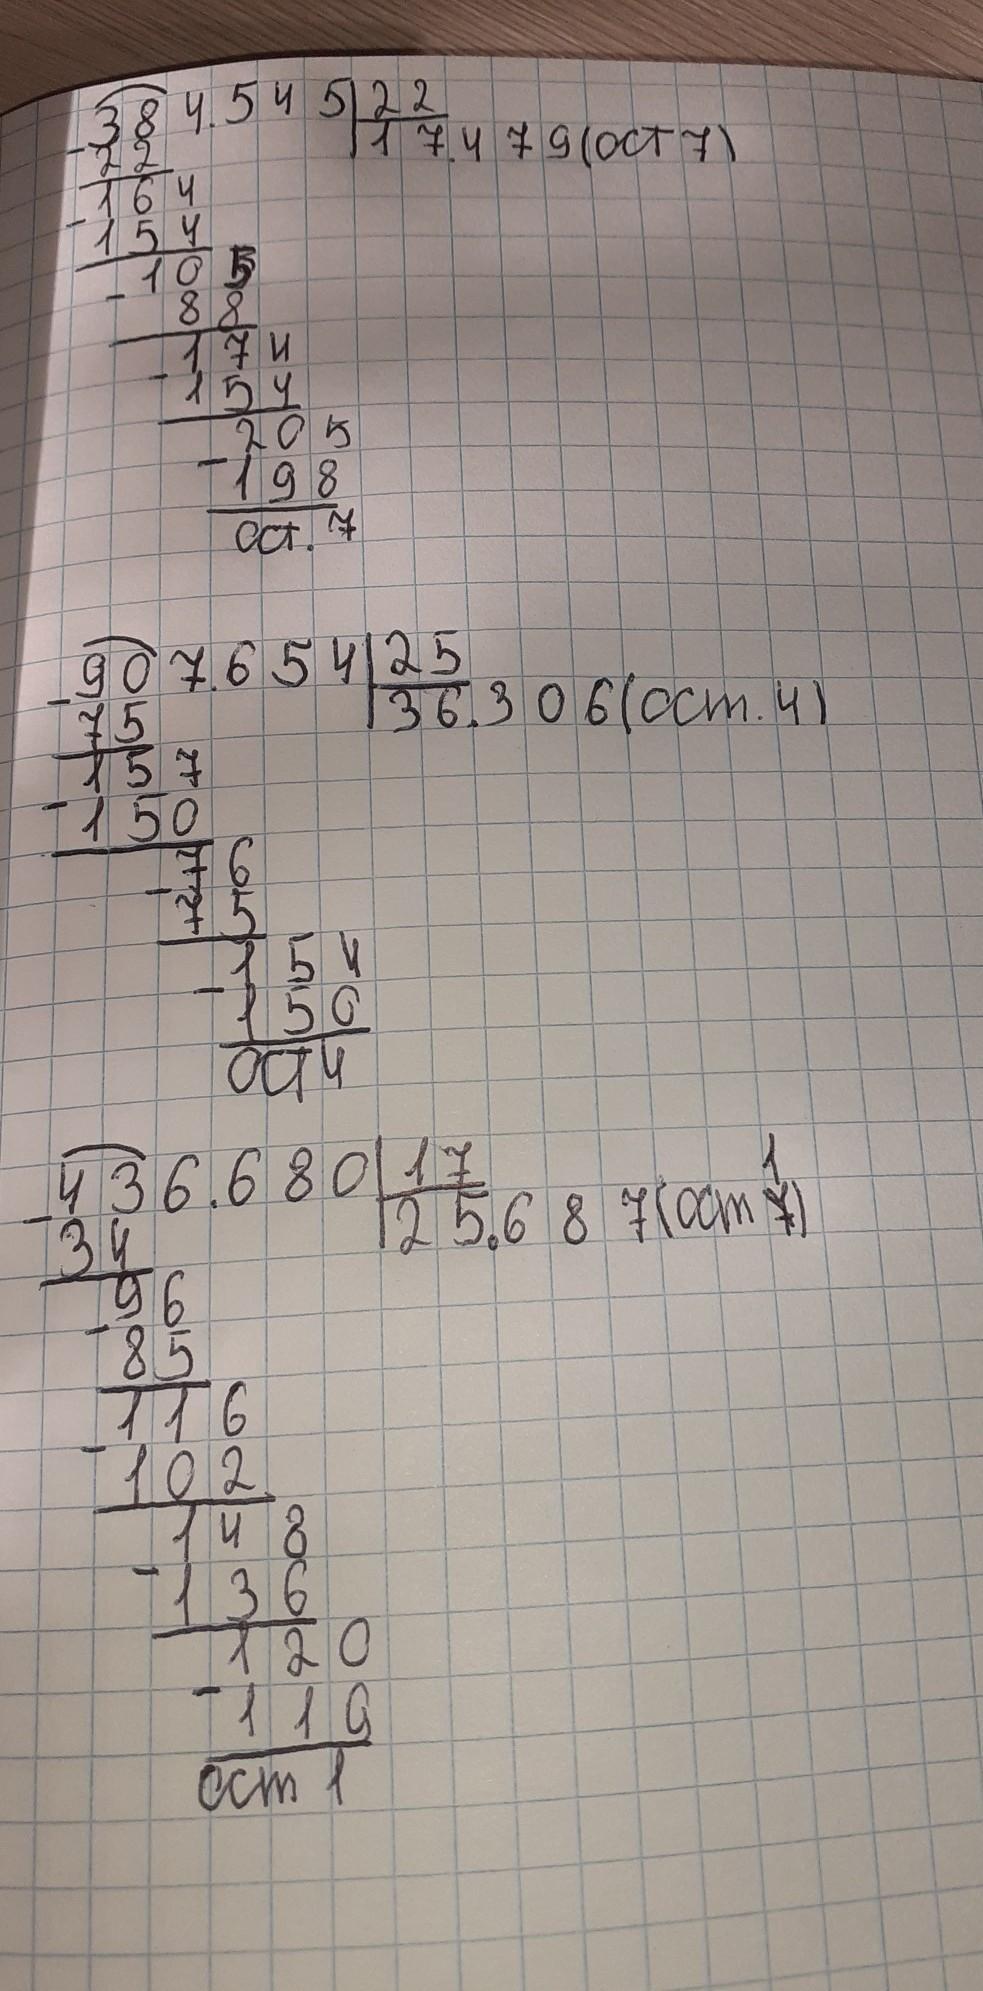 384.545|22
-22 17.479(ост 7)
164
-154
105
-88
174
-154
205
-198
ост. 7
907.654|25
-75 36.306(ост. 4)
157
-150
76
-75
154
-150
ост 4
436.680|17 1
-34 25.687(ост 7)
96
-85
116
-102
148
-136
120
-119
ост 1